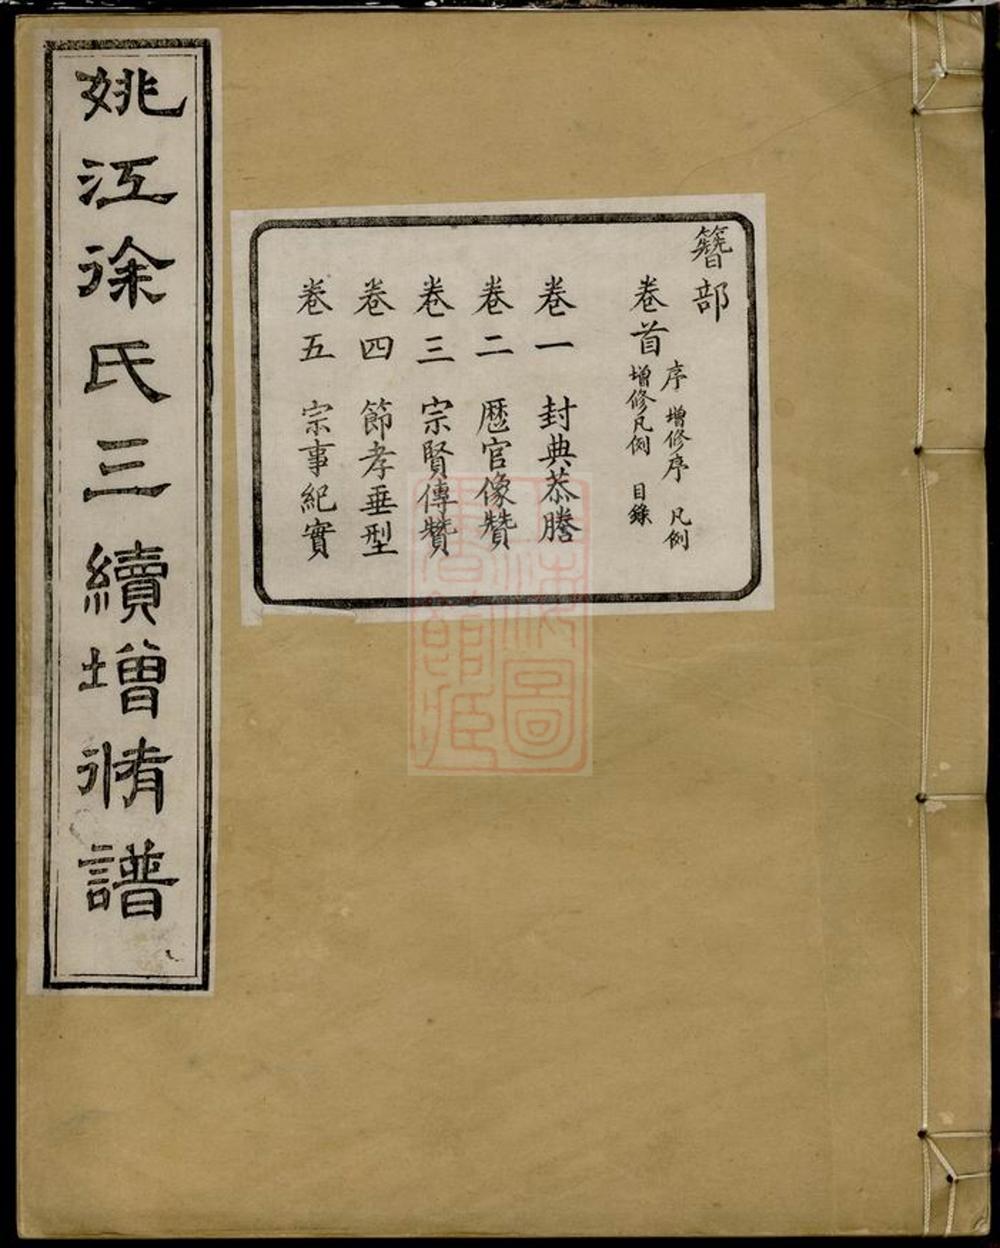 姚江徐氏三續增脩譜
簪部
卷首 序 增修序 凡例
增修凡例 目錄
卷一 封典恭謄
卷二 歷官像贊
卷三 宗賢傳贊
卷四 節孝垂型
卷五 宗事紀實
上海圖書館藏